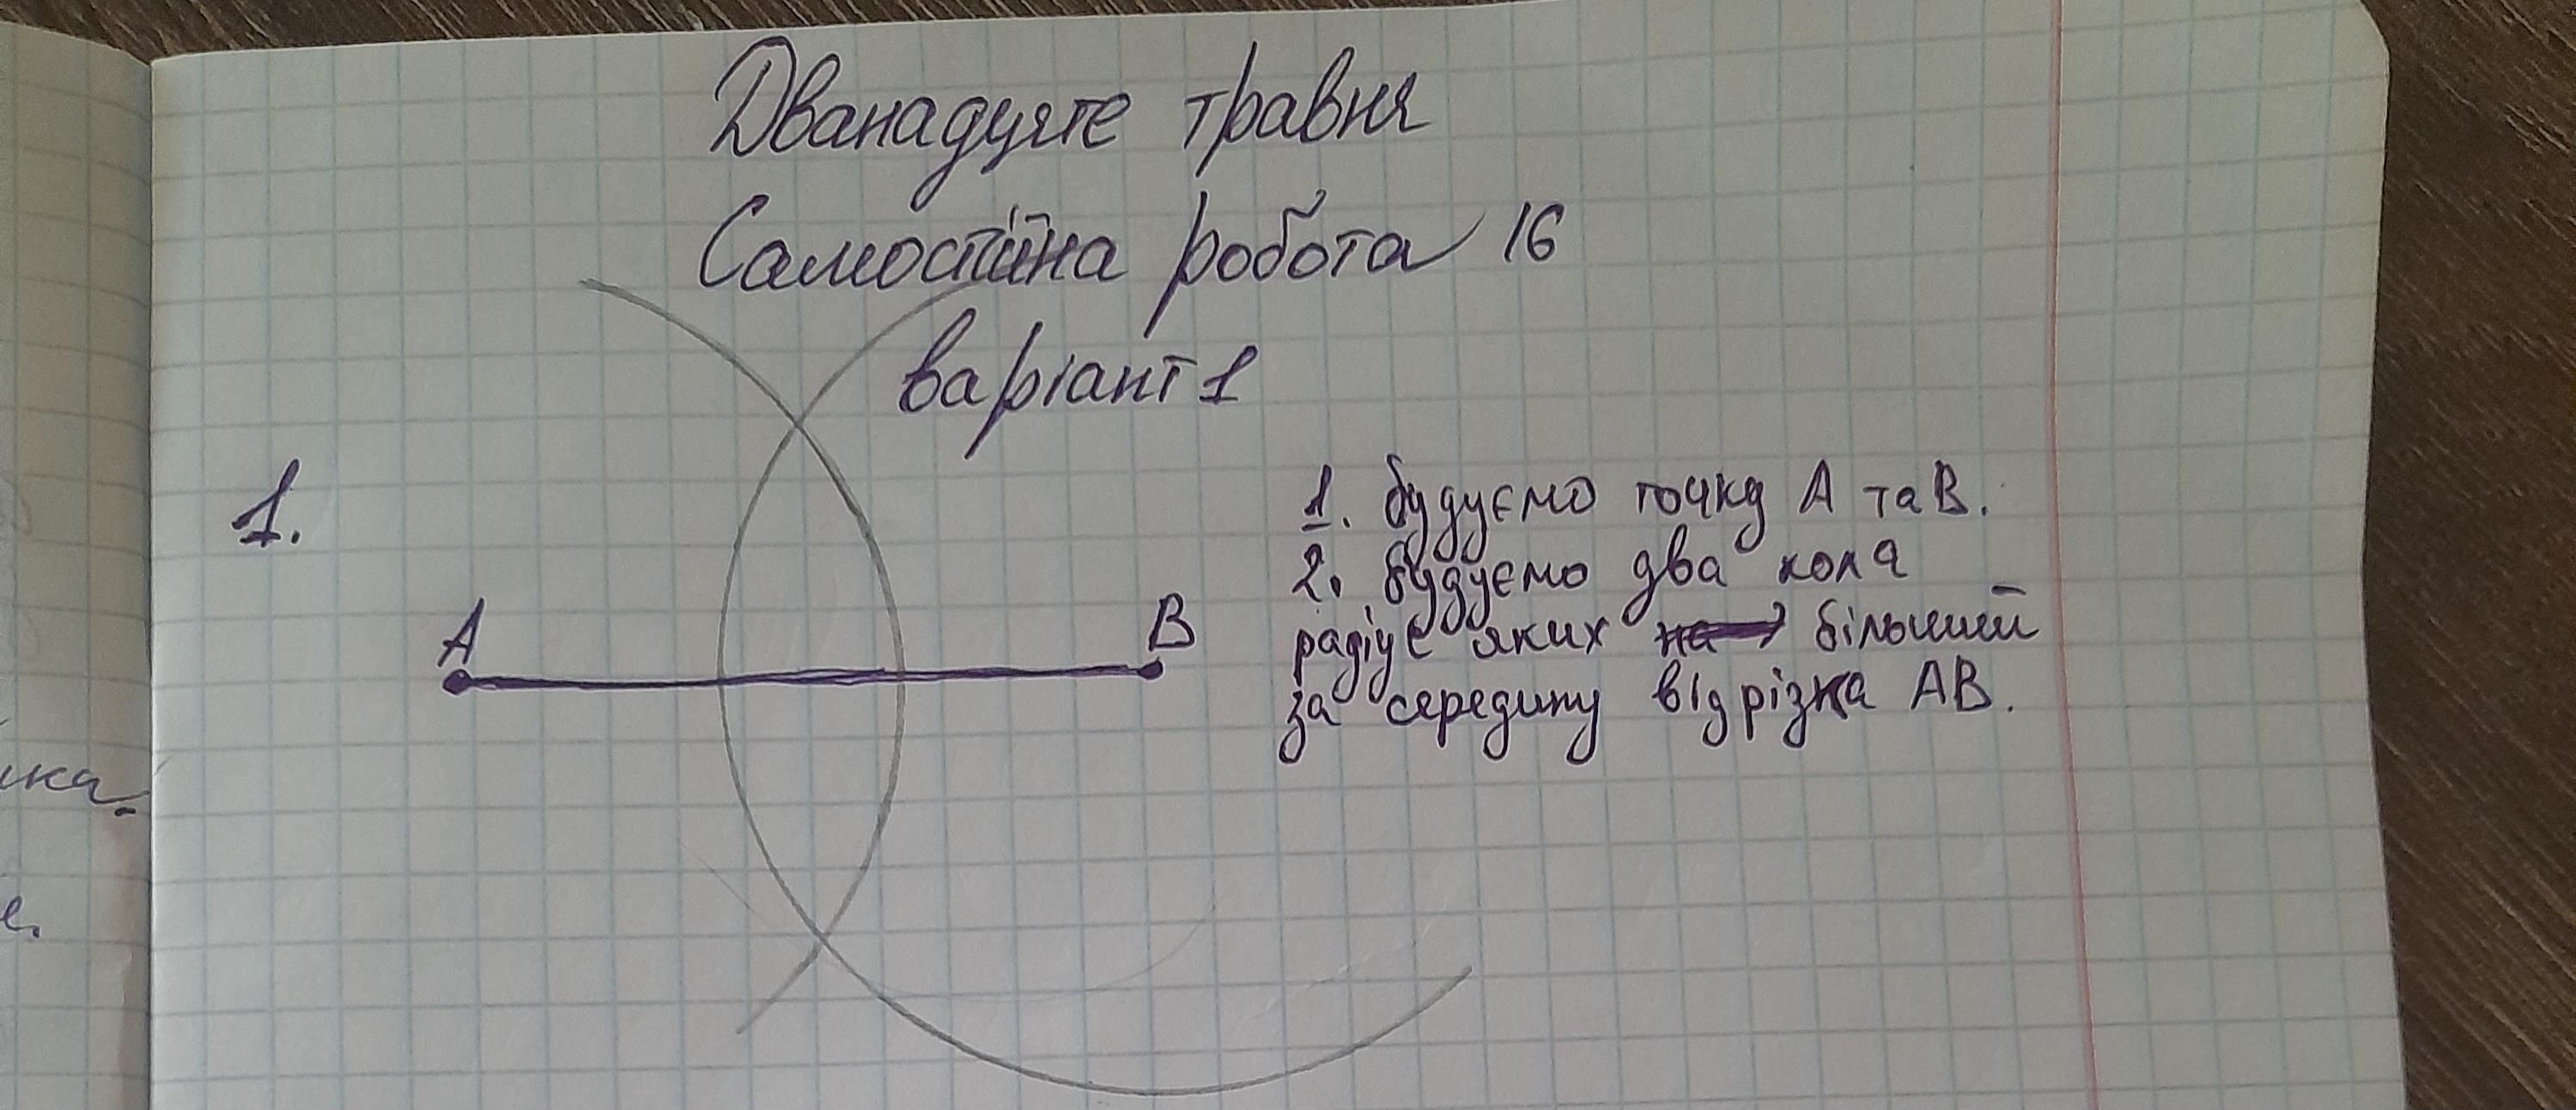 Дванадцяте травня
Самостійна робота 16
варіант 1
1.
А
В
1. будуємо точку А та В.
2. будуємо два кола
радіус яких на більший
за середину відрізка АВ.
ика.
е.